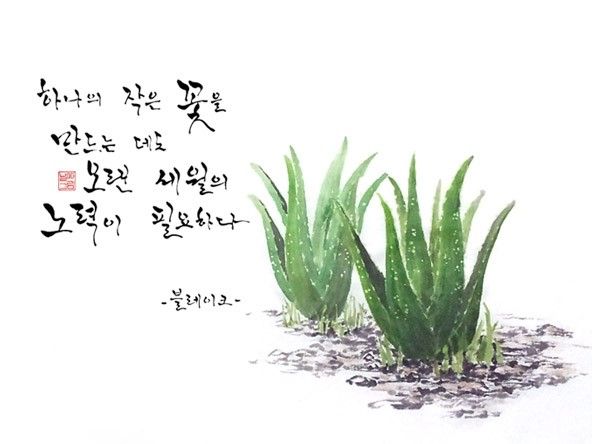 하나의 작은 꽃을
만드는 데도
오랜 세월의
노력이 필요하다
-블레이크-